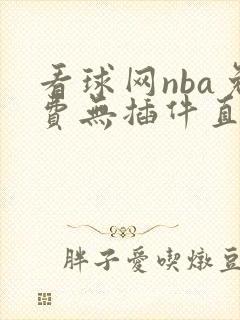 看球网nba免
費無插件直
胖子愛喫燉豆